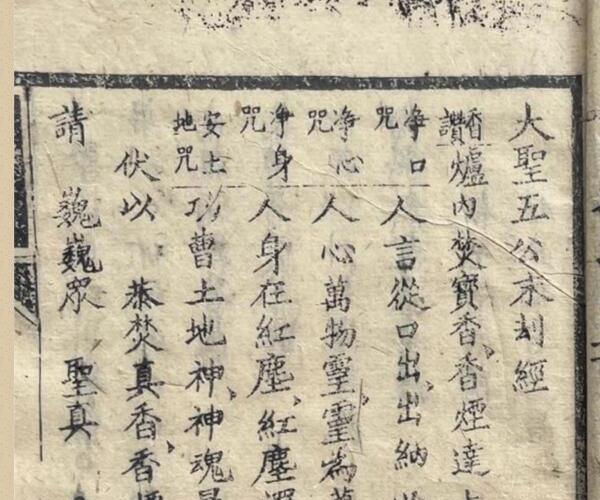 大聖五公末刼經
香讚 爐內焚寶香香煙達
淨口咒 人言從口出出納
淨心咒 人心萬物𩆜𩆜為萬
淨身咒 人身在紅塵紅塵
安土地咒 功曹土地神神魂
伏以 恭焚真香香煙
請 巍巍眾 聖真